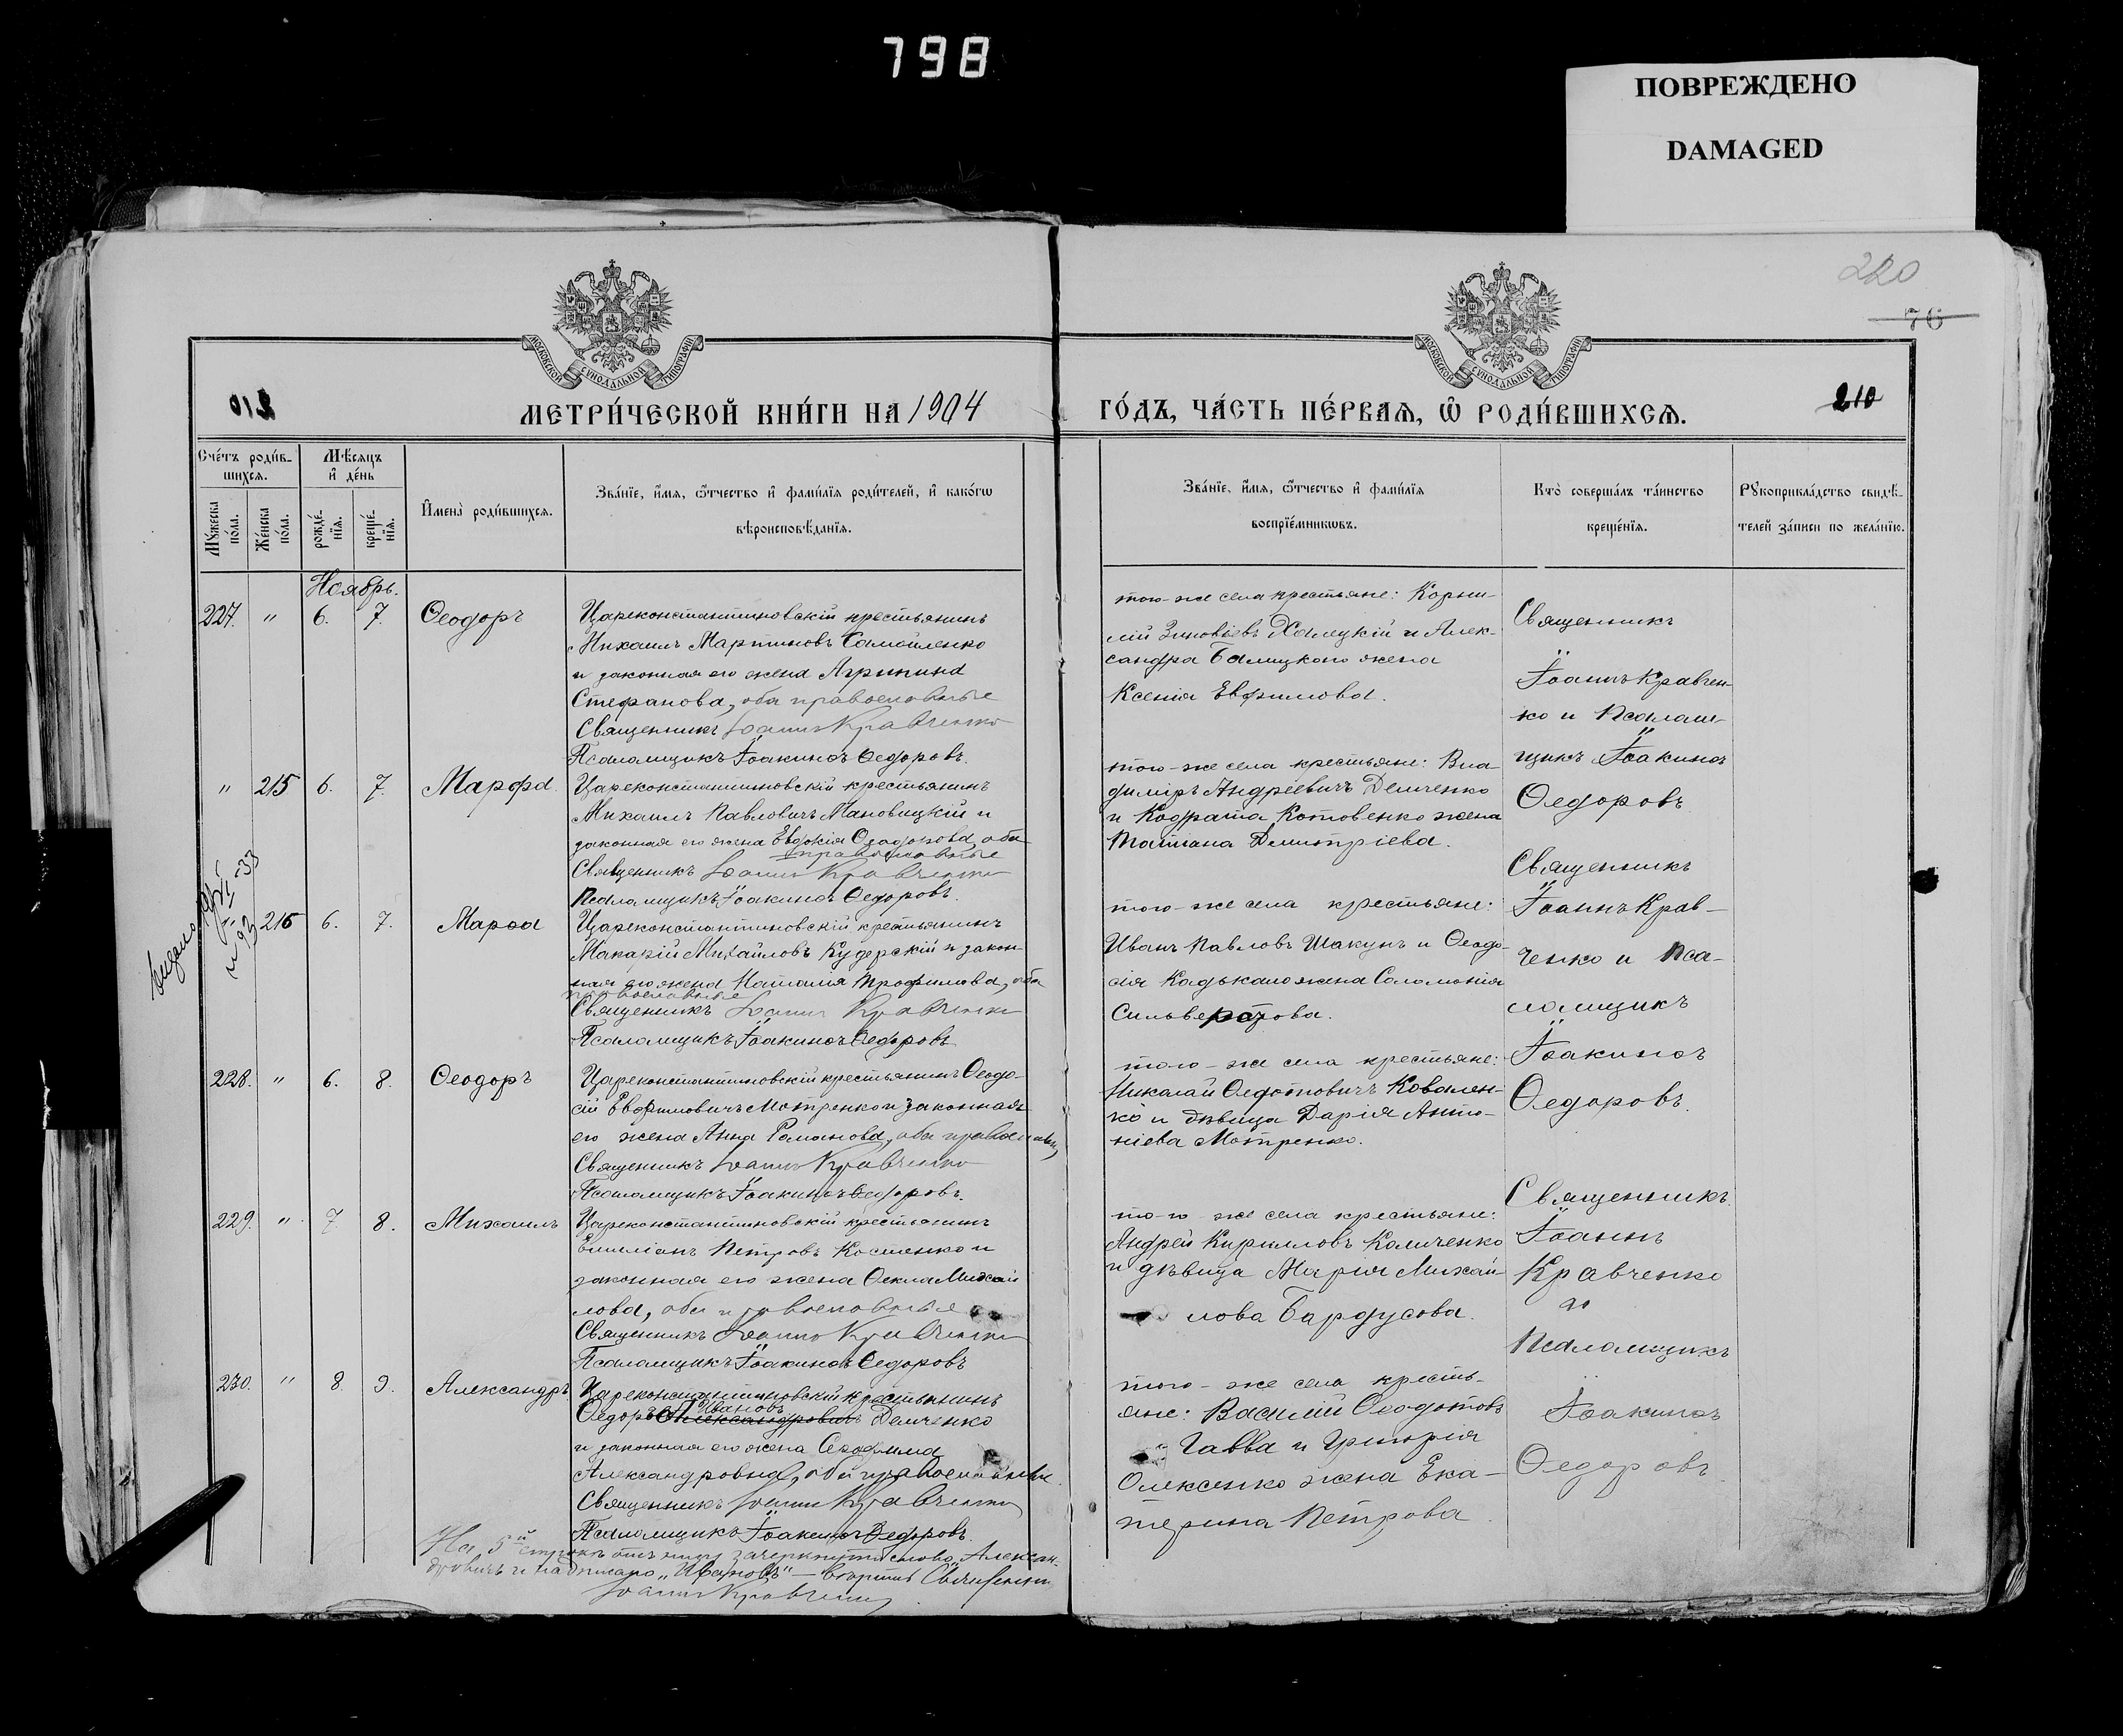 798
ПОВРЕЖДЕНО
DAMAGED
220
76
МОСКОВСКОЙ СѴНОДАЛЬНОЙ ТИПОГРАФІИ
МОСКОВСКОЙ СѴНОДАЛЬНОЙ ТИПОГРАФІИ
МЕТРИ́ЧЕСКОЙ КНИ́ГИ НА 1904
ГО́ДЪ, ЧА́СТЬ ПЕ́РВАЯ, Ѡ҆ РОДИ́ВШИХСЯ.
210
Сче́тъ роди́в-
шихся.
Мѣ́сяцъ
и҆ де́нь
Мꙋ́жеска
по́ла.
Же́нска
по́ла.
рожде́-
нїя.
креще́-
нїя.
И҆мена̀ роди́вшихся.
Зва́нїе, и҆́мя, ѻ҆́тчество и҆ фами́лїя роди́телей, и҆ како́гѡ
вѣроисповѣ́данїя.
Зва́нїе, и҆́мя, ѻ҆́тчество и҆ фами́лїя
воспрїе́мникѡвъ.
Кто̀ соверша́лъ та́инство
креще́нїя.
Рꙋкоприкла́дство свидѣ́-
телей за́писи по жела́нїю.
Ноябрь.
227. " 6. 7. Ѳеодоръ
Цареконстантиновскій крестьянинъ
Михаилъ Мартиновъ Самойленко
и законная его жена Агрипина
Стефанова, оба православные
Священникъ Іоаннъ Кравченко
Псаломщикъ Іоакимъ Ѳедоровъ.
того-же села крестьяне: Корни-
лій Зиновіевъ Халецкій и Алек-
сандра Балицкого жена
Ксенія Евфимова.
Священникъ
Іоаннъ Кравчен-
ко и Псалом-
щикъ Іоакимъ
Ѳедоровъ
" 215 6. 7. Марфа
Цареконстантиновскій крестьянинъ
Михаилъ Павловичъ Мановицкій и
законная его жена Евдокія оба
православные
Священникъ Іоаннъ Кравченко
Псаломщикъ Іоакимъ Ѳедоровъ.
того-же села крестьяне: Вла-
диміръ Андреевичъ Демченко
и Кодрата Котовенко жена
Татіана Димитріева.
Священникъ
Іоаннъ Крав-
ченко и Пса-
ломщикъ
Іоакимъ
Ѳедоровъ.
" 216 6. 7. Марѳа
Цареконстантиновскій крестьянинъ
Макарій Михайловъ Кудерскій и закон-
ная его жена Наталія Трофимова, оба
православные
Священникъ Іоаннъ Кравченко
Псаломщикъ Іоакимъ Ѳедоровъ
того-же села крестьяне:
Иванъ Павловъ Шакунъ и Ѳеодо-
сія жена Соломонія
Сильверстрова.
228. " 6. 8. Ѳеодоръ
Цареконстантиновскій крестьянинъ Ѳеодо-
сій Евфимовичъ Мотренко и законная
его жена Анна Романова, оба православн.
Священникъ Іоаннъ Кравченко
Псаломщикъ Іоакимъ Ѳедоровъ.
того-же села крестьяне:
Николай Ѳедотовичъ Ковален-
ко и дѣвица Дарія Анто-
ніева Мотренко.
229. " 7. 8. Михаилъ
Цареконстантиновскій крестьянинъ
Емиліанъ Петровъ Косменко и
законная его жена Ѳекла Михай
лова, оба православные
Священникъ Іоаннъ Кравченко
Псаломщикъ Іоакимъ Ѳедоровъ
того же села крестьяне:
Андрей Кирилловъ Количенко
и дѣвица Марія Михай
лова Бардусова.
Священникъ
Іоаннъ
Кравченко
и
Псаломщикъ
Іоакимъ
Ѳедоровъ.
230. " 8. 9. Александръ
Цареконстантиновскій крестьянинъ
Ивановъ
Ѳедоръ Александровичъ Демченко
и законная его жена
Александровна, оба православные.
Священникъ Іоаннъ Кравченко
Псаломщикъ Іоакимъ Ѳедоровъ.
того-же села кресть-
яне: Василій Ѳеодотовъ
Гавва и Григорія
Олексенко жена Ека-
терина Петрова.
На 5й строкѣ отъ низу зачеркнуто слово „Алексан-
дровичъ и надписано „Ивановъ" — вѣрить Священникъ
Іоаннъ Кравченко